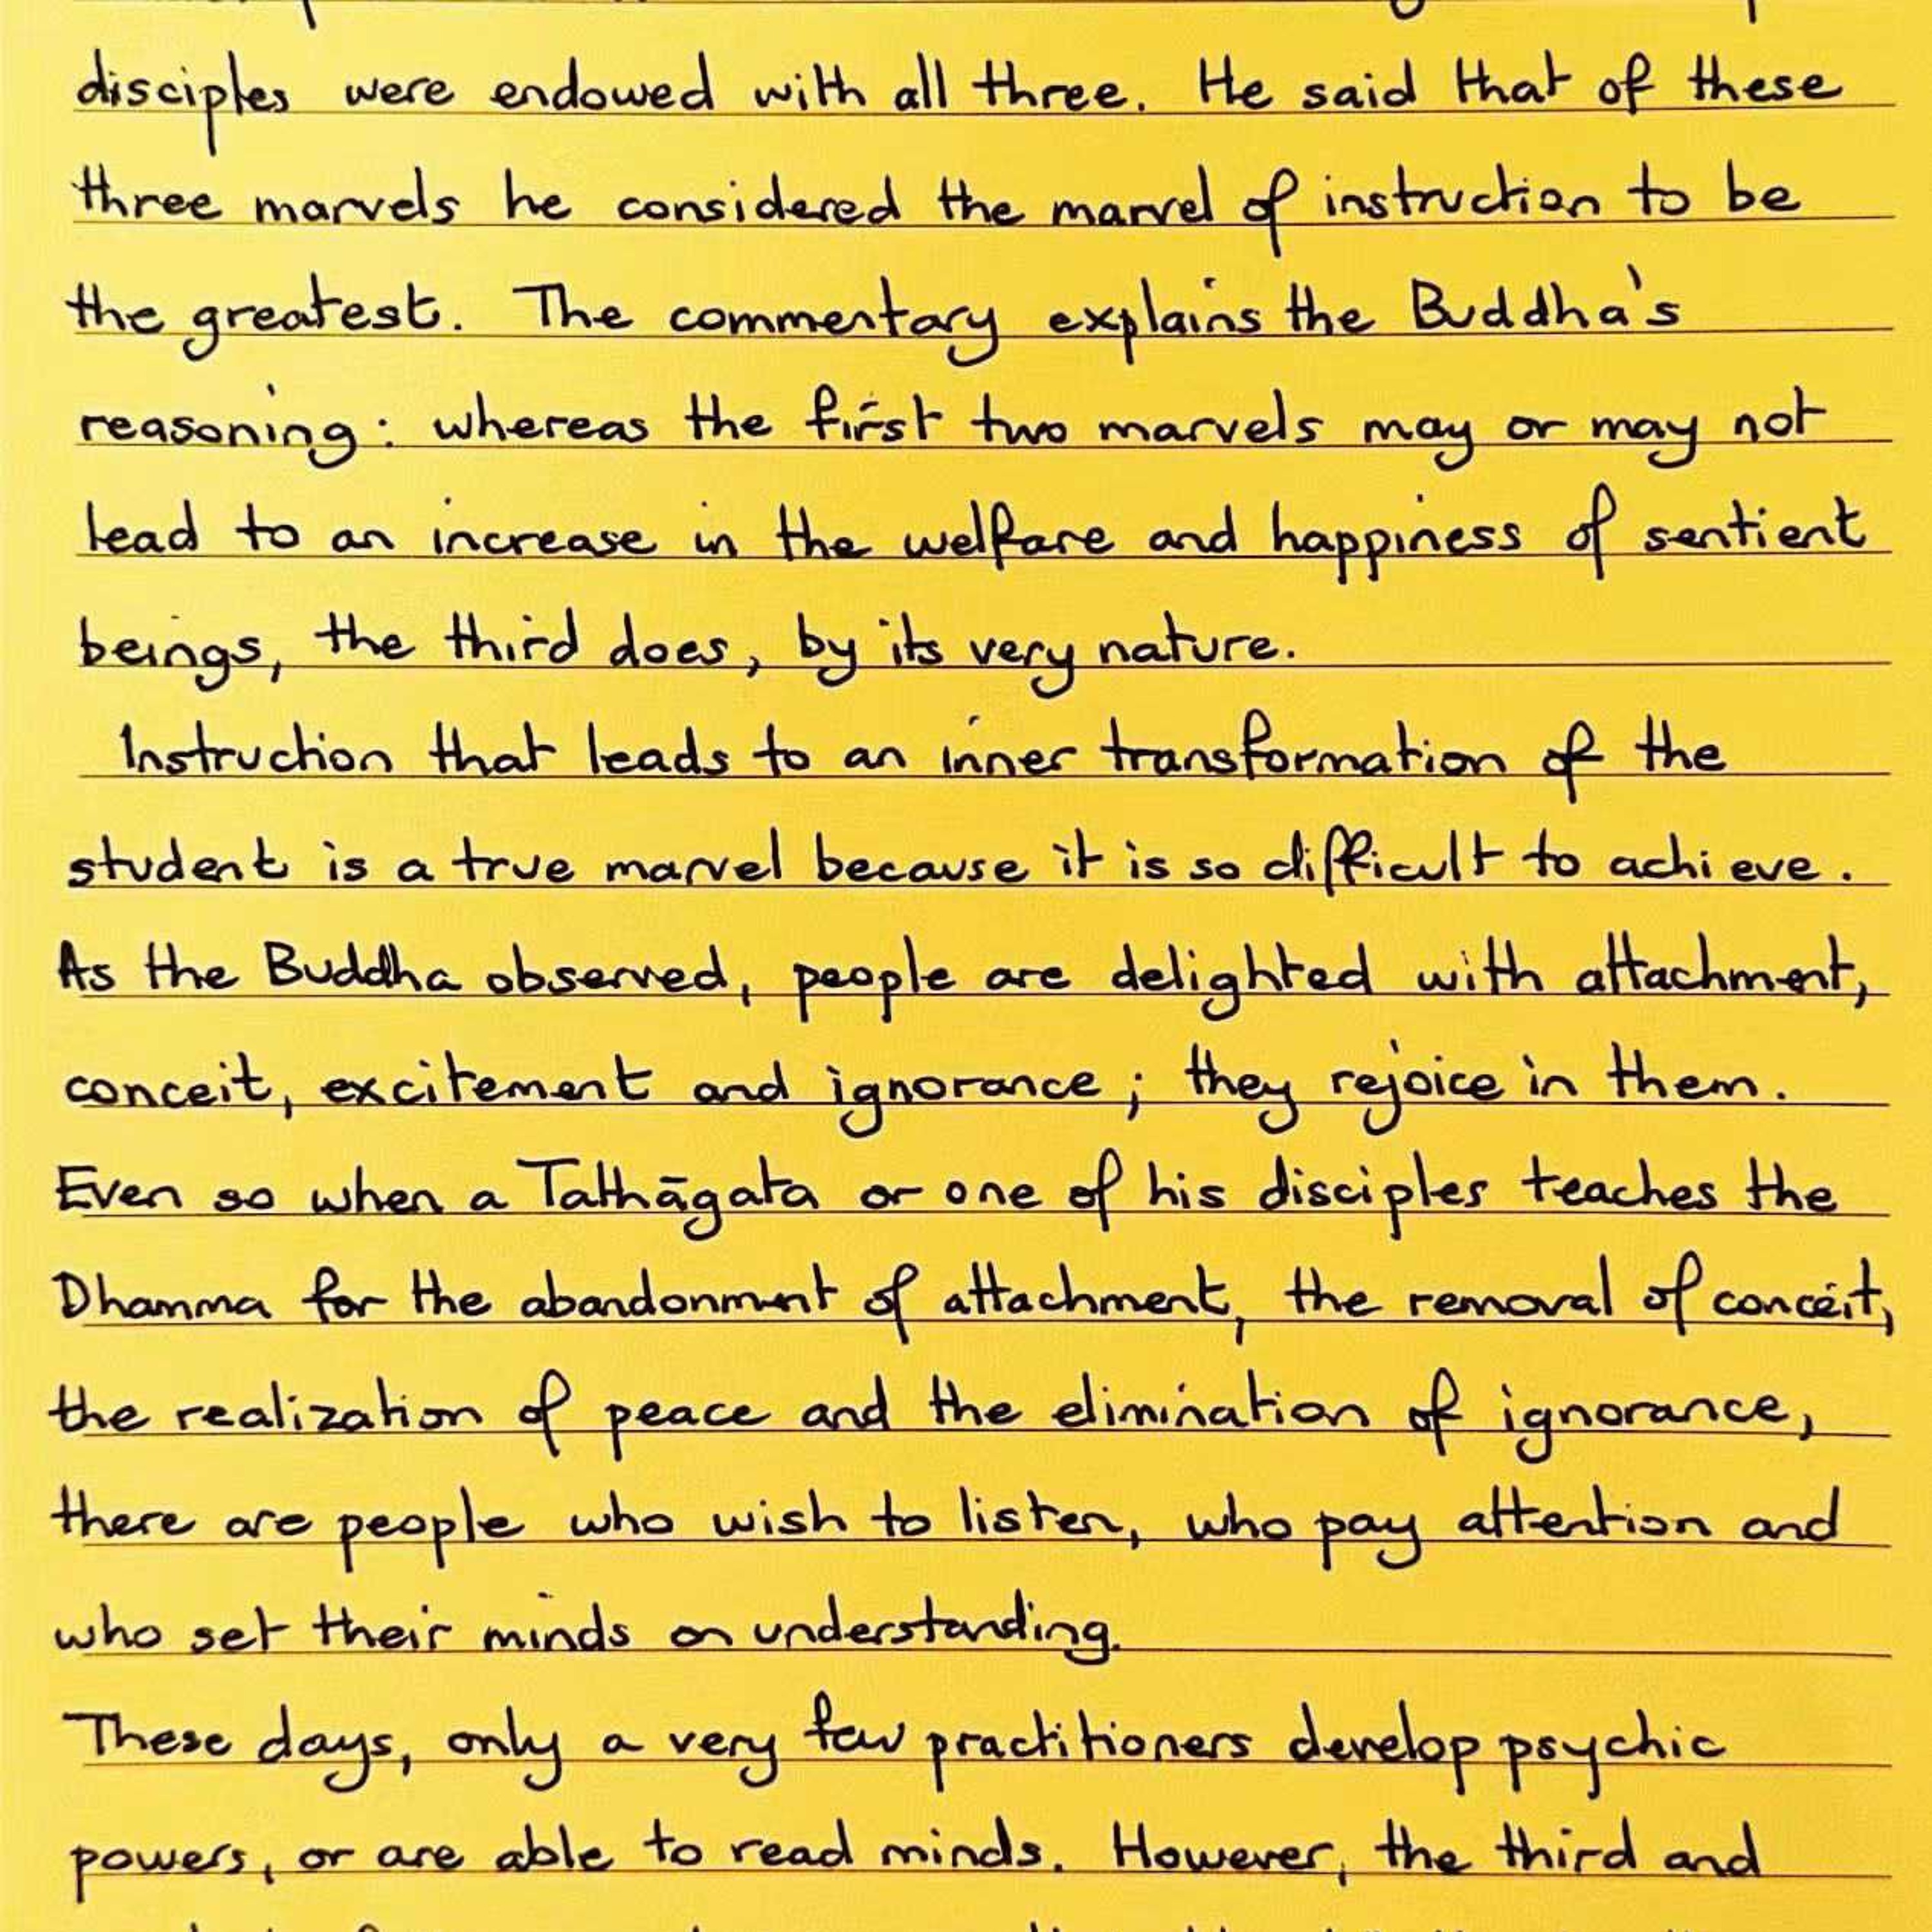 disciples were endowed with all three. He said that of these
three marvels he considered the marvel of instruction to be
the greatest. The commentary explains the Buddha's
reasoning: whereas the first two marvels may or may not
lead to an increase in the welfare and happiness of sentient
beings, the third does, by its very nature.
Instruction that leads to an inner transformation of the
student is a true marvel because it is so difficult to achieve.
As the Buddha observed, people are delighted with attachment,
conceit, excitement and ignorance; they rejoice in them.
Even so when a Tathāgata or one of his disciples teaches the
Dhamma for the abandonment of attachment, the removal of conceit,
the realization of peace and the elimination of ignorance,
there are people who wish to listen, who pay attention and
who set their minds on understanding.
These days, only a very few practitioners develop psychic
powers, or are able to read minds. However, the third and